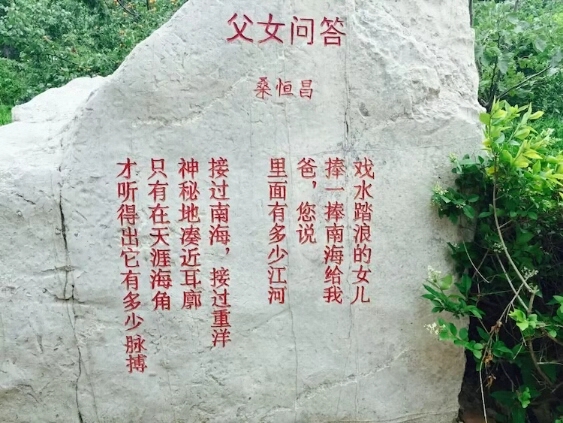 父女问答
桑恒昌
戏水踏浪的女儿
捧一捧南海给我
爸，您说
里面有多少江河
接过南海，接过重洋
神秘地凑近耳廓
只有在天涯海角
才听得出它有多少脉搏